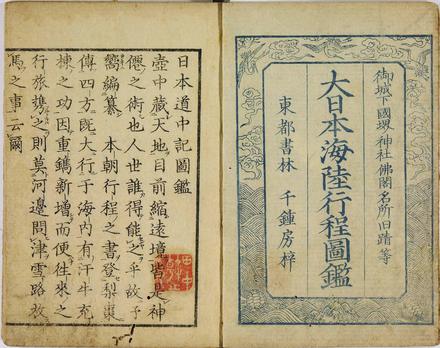 御城下國堺神社佛閣名所旧蹟等
大日本海陸行程圖鑑
東都書林 千鍾房梓
日本道中記圖鑑
壺中藏天地目前縮遠境皆是神
僊之術也人世誰得能之乎故予
嚮編纂 本朝行程之書登梨棗
傳四方既大行于海内有汗牛充
棟之功因重鐫新增而便往来之
行旅携之則莫河邊問津雪路放
馬之事云爾